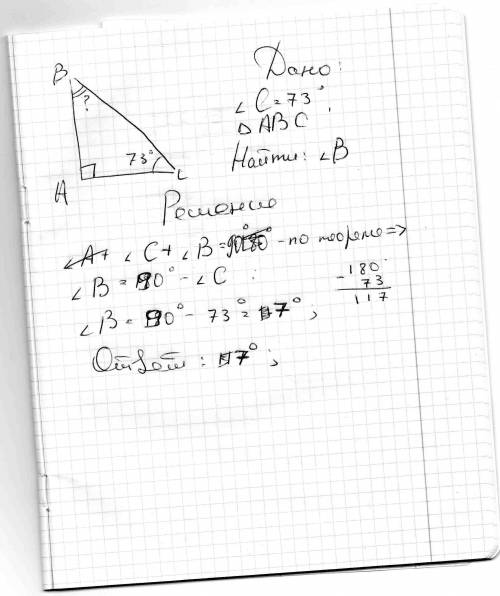 B
?
73°
A
C
Дано:
∠C=73°,
△ABC
Найти: ∠B
Решение
∠A+ ∠C+ ∠B=90° - по теореме =>
∠B = 90° - ∠C :
180
- 73
117
∠B = 90° - 73° = 17° ;
Ответ: 17° ;